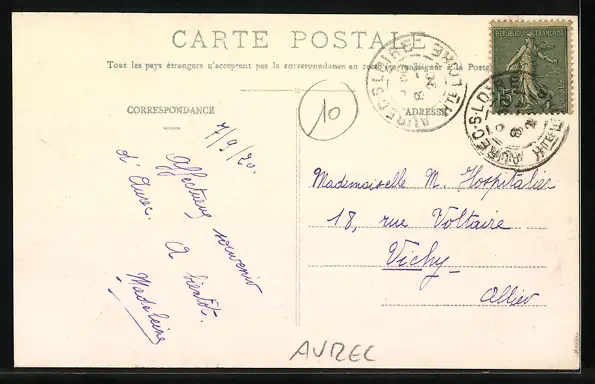 CARTE POSTALE
Tous les pays étrangers n'acceptent pas la correspondance au recto
CORRESPONDANCE
ADRESSE
RÉPUBLIQUE FRANÇAISE
AUREC-S-LOIRE
HTE LOIRE
AUREC-S-LOIRE
HTE
10
7/9/20.
Affectueux souvenir
d'Aurec.
A bientôt.
Madeleine
Mademoiselle M. Hospitalier
18, rue Voltaire
Vichy
Allier
AUREC